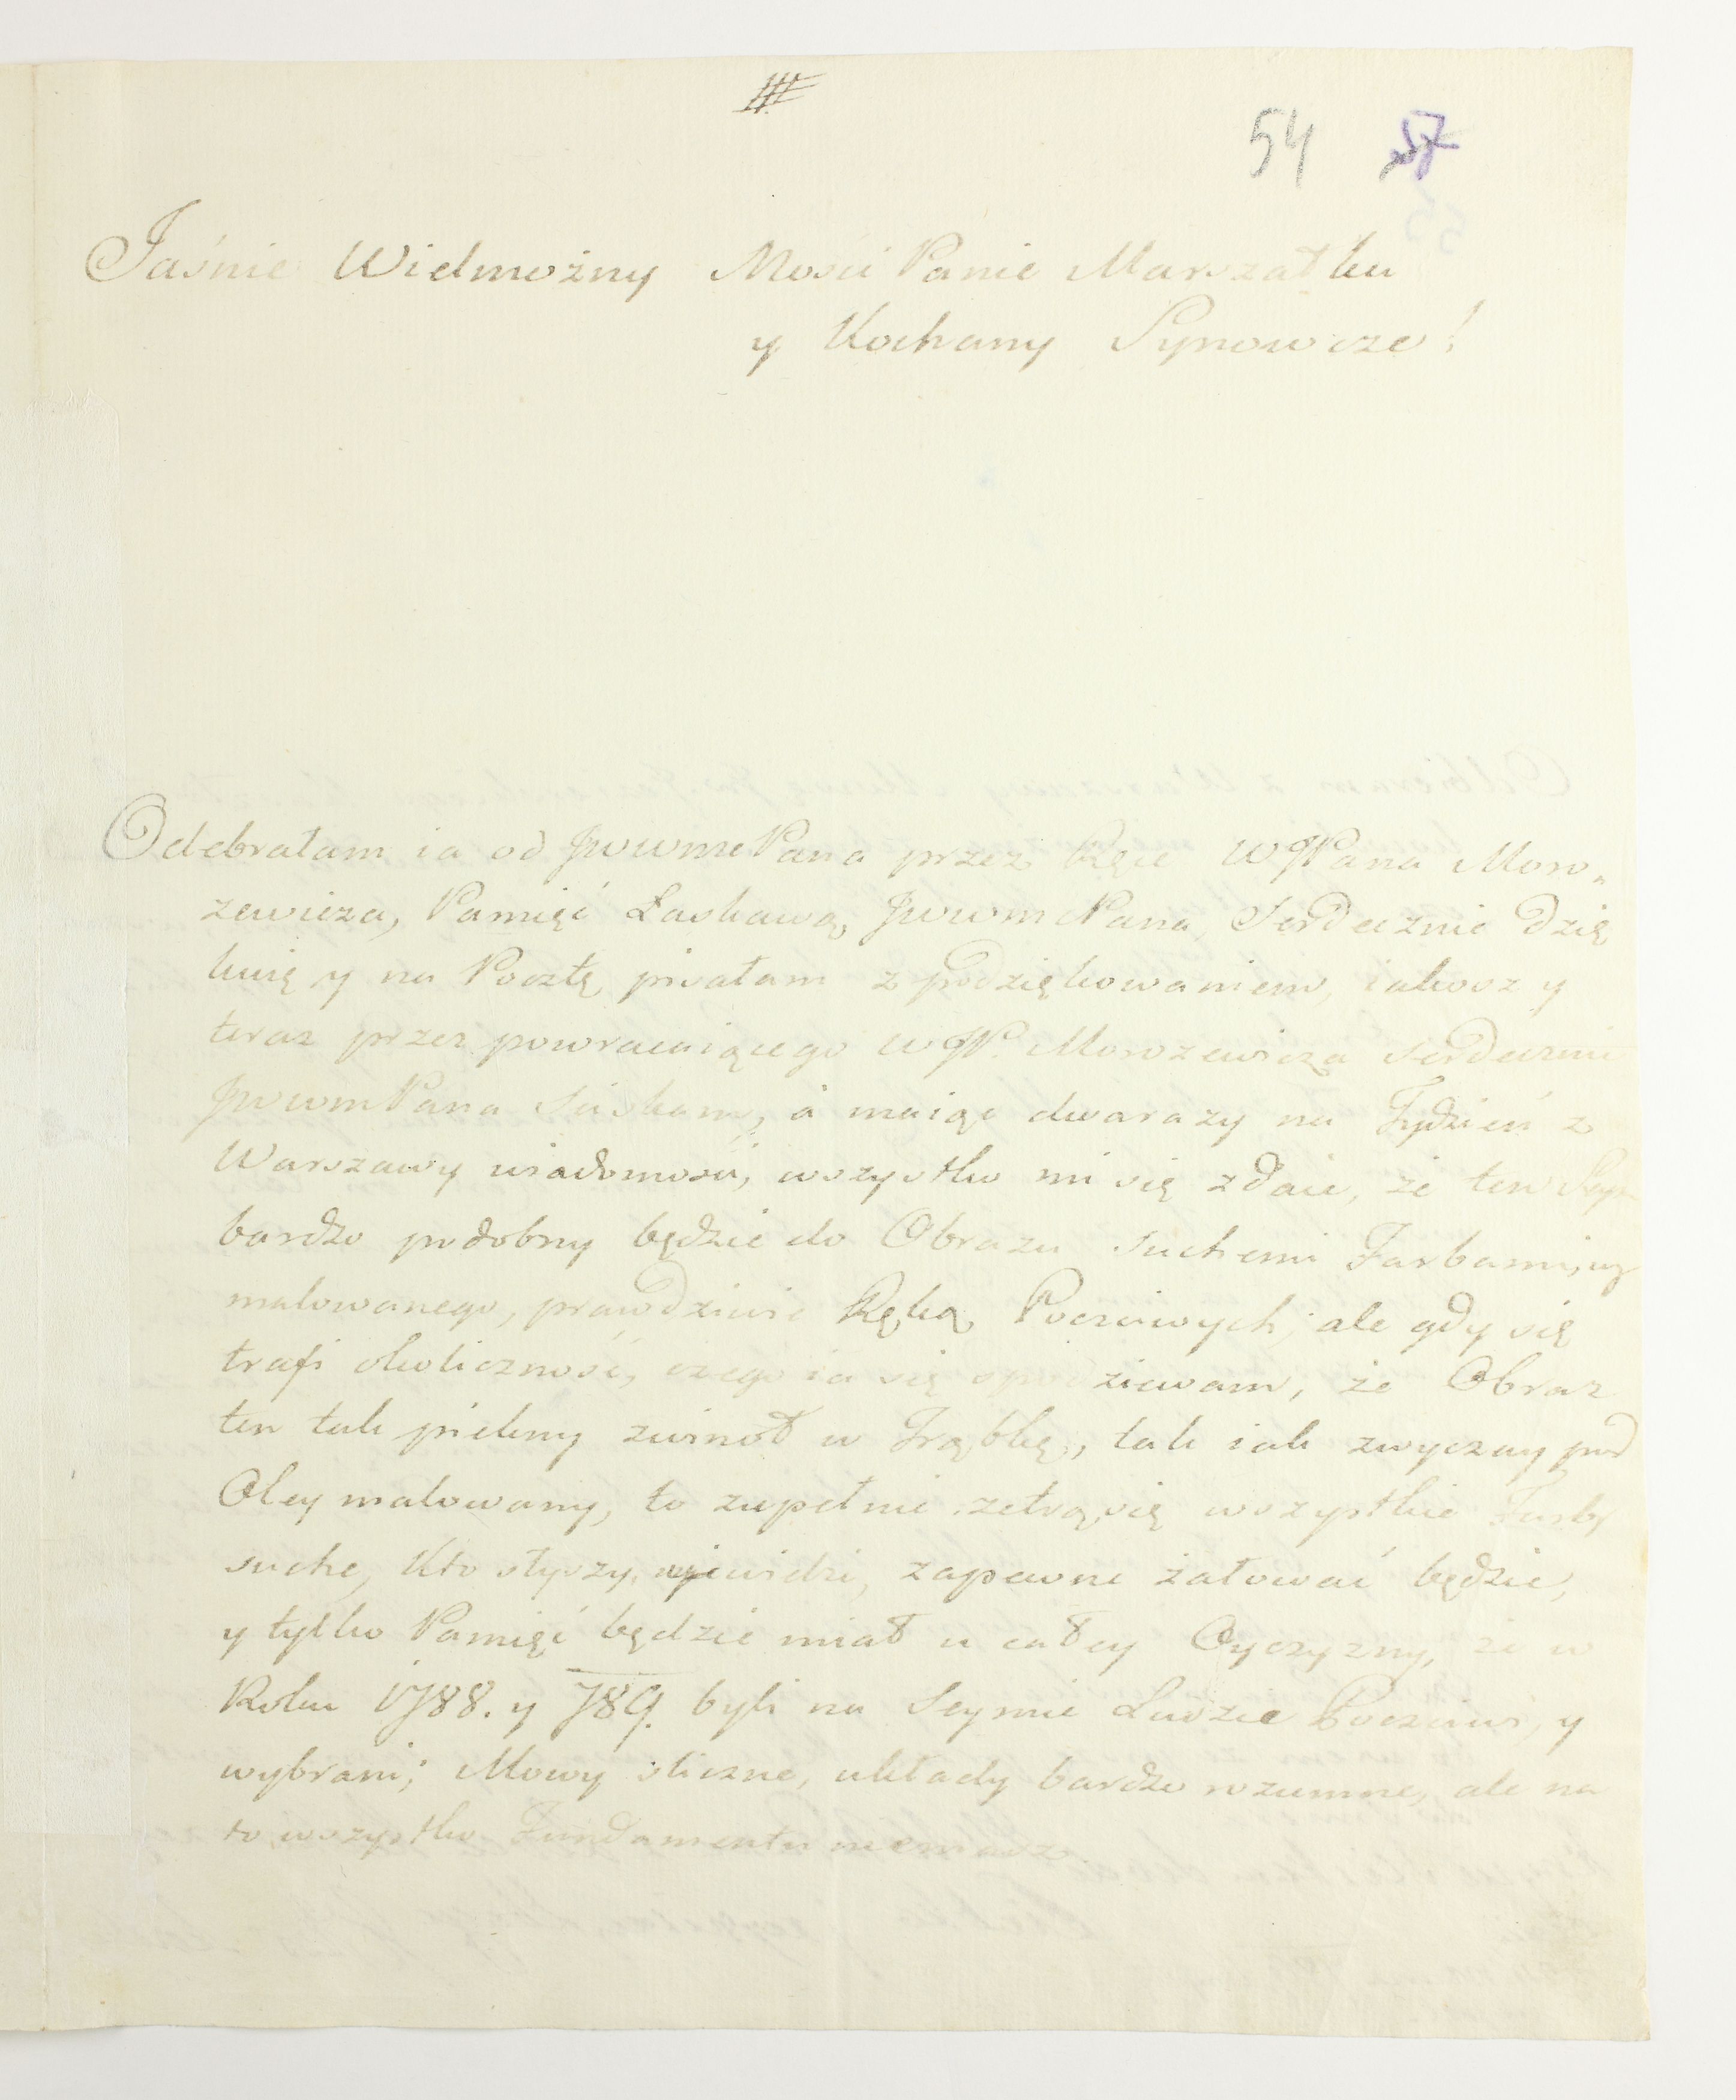 54 57
Jaśnie Wielmożny Mosci Panie Marszałku
y Kochany Synowcze!
Odebrałam ia od JWWMePana przez Ręce WJPana Moro„
zewicza, Pamięć Łaskawą JWWMPana, Serdecznie dzię
kuię y na Pocztę pisałam z podziękowaniem, iakosz y
teraz przez powracaiącego WJP. Morozewicza serdecznie
JWWmPana ściskam, á maiąc dwarazy na Tydzień z
Warszawy wiadomości, wszystko mi się zdaie, że ten Seym
bardzo podobny będzie do Obrazu suchemi Farbami, wy
malowanego, prawdziwie Ręką Poczciwych; ale gdy się
trafi okoliczność, czego ia się spodziewam, że Obraz
ten tak piekny zwinoł w Trąbkę, tak iak zwyczay pod
Oley malowany, to zupełnie zetrą się wszystkie Farby
suche, Kto słyszy, widzi, zapewne żałować będzie,
y tylko Pamięć będzie miał u całey Oyczyzny, że w
Roku 1788. y 789. byli na Seymie Ludzie Poczciwi, y
wybrani; Mowy sliczne, układy bardzo rozumne, ale na
to wszystko Fundamentu niemasz.